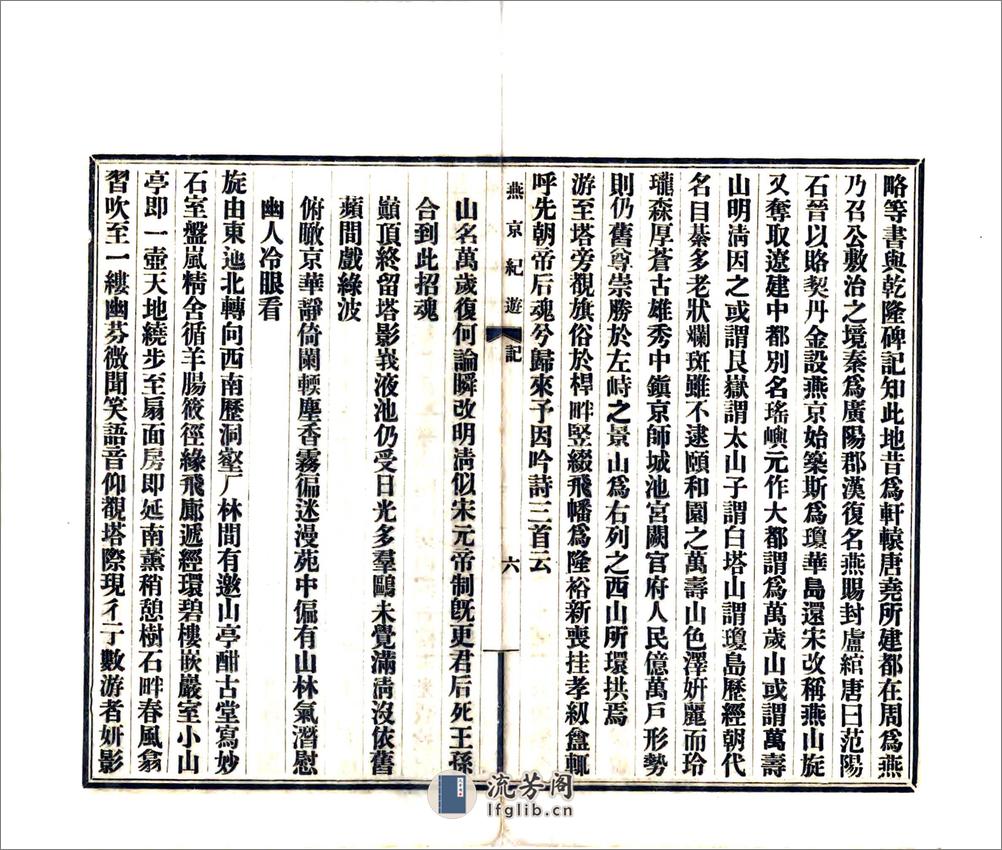 略等書與乾隆碑記知此地昔爲軒轅唐堯所建都在周爲燕
乃召公敷治之境秦爲廣陽郡漢復名燕賜封盧綰唐曰范陽
石晉以賂契丹金設燕京始築斯爲瓊華島還宋改稱燕山旋
又奪取遼建中都別名瑤嶼元作大都謂爲萬歲山或謂萬壽
山明淸因之或謂艮嶽謂太山子謂白塔山謂瓊島歷經朝代
名目綦多老狀斕斑雖不逮頤和園之萬壽山色澤妍麗而玲
瓏森厚蒼古雄秀中鎭京師城池宮闕官府人民億萬戶形勢
則仍舊尊崇勝於左峙之景山爲右列之西山所環拱焉
游至塔旁覩旗俗於桿畔竪綴飛幡爲隆裕新喪挂孝紉盦輒
呼先朝帝后魂兮歸來予因吟詩三首云
燕京紀遊 記 六
山名萬歲復何論瞬改明淸似宋元帝制旣更君后死王孫
合到此招魂
巓頂終留塔影峩液池仍受日光多羣鷗未覺滿淸沒依舊
蘋間戲綠波
俯瞰京華靜倚闌輭塵香霧徧迷漫苑中偏有山林氣潛慰
幽人冷眼看
旋由東迆北轉向西南歷洞壑厂林間有邀山亭酣古堂寫妙
石室盤嵐精舍循羊腸筱徑緣飛廊遞經環碧樓嵌巖室小山
亭即一壺天地繞步至扇面房即延南薰稍憩樹石畔春風翕
習吹至一縷幽芬微聞笑語音仰觀塔際現彳亍數游者妍影
流芳阁
lfglib.cn